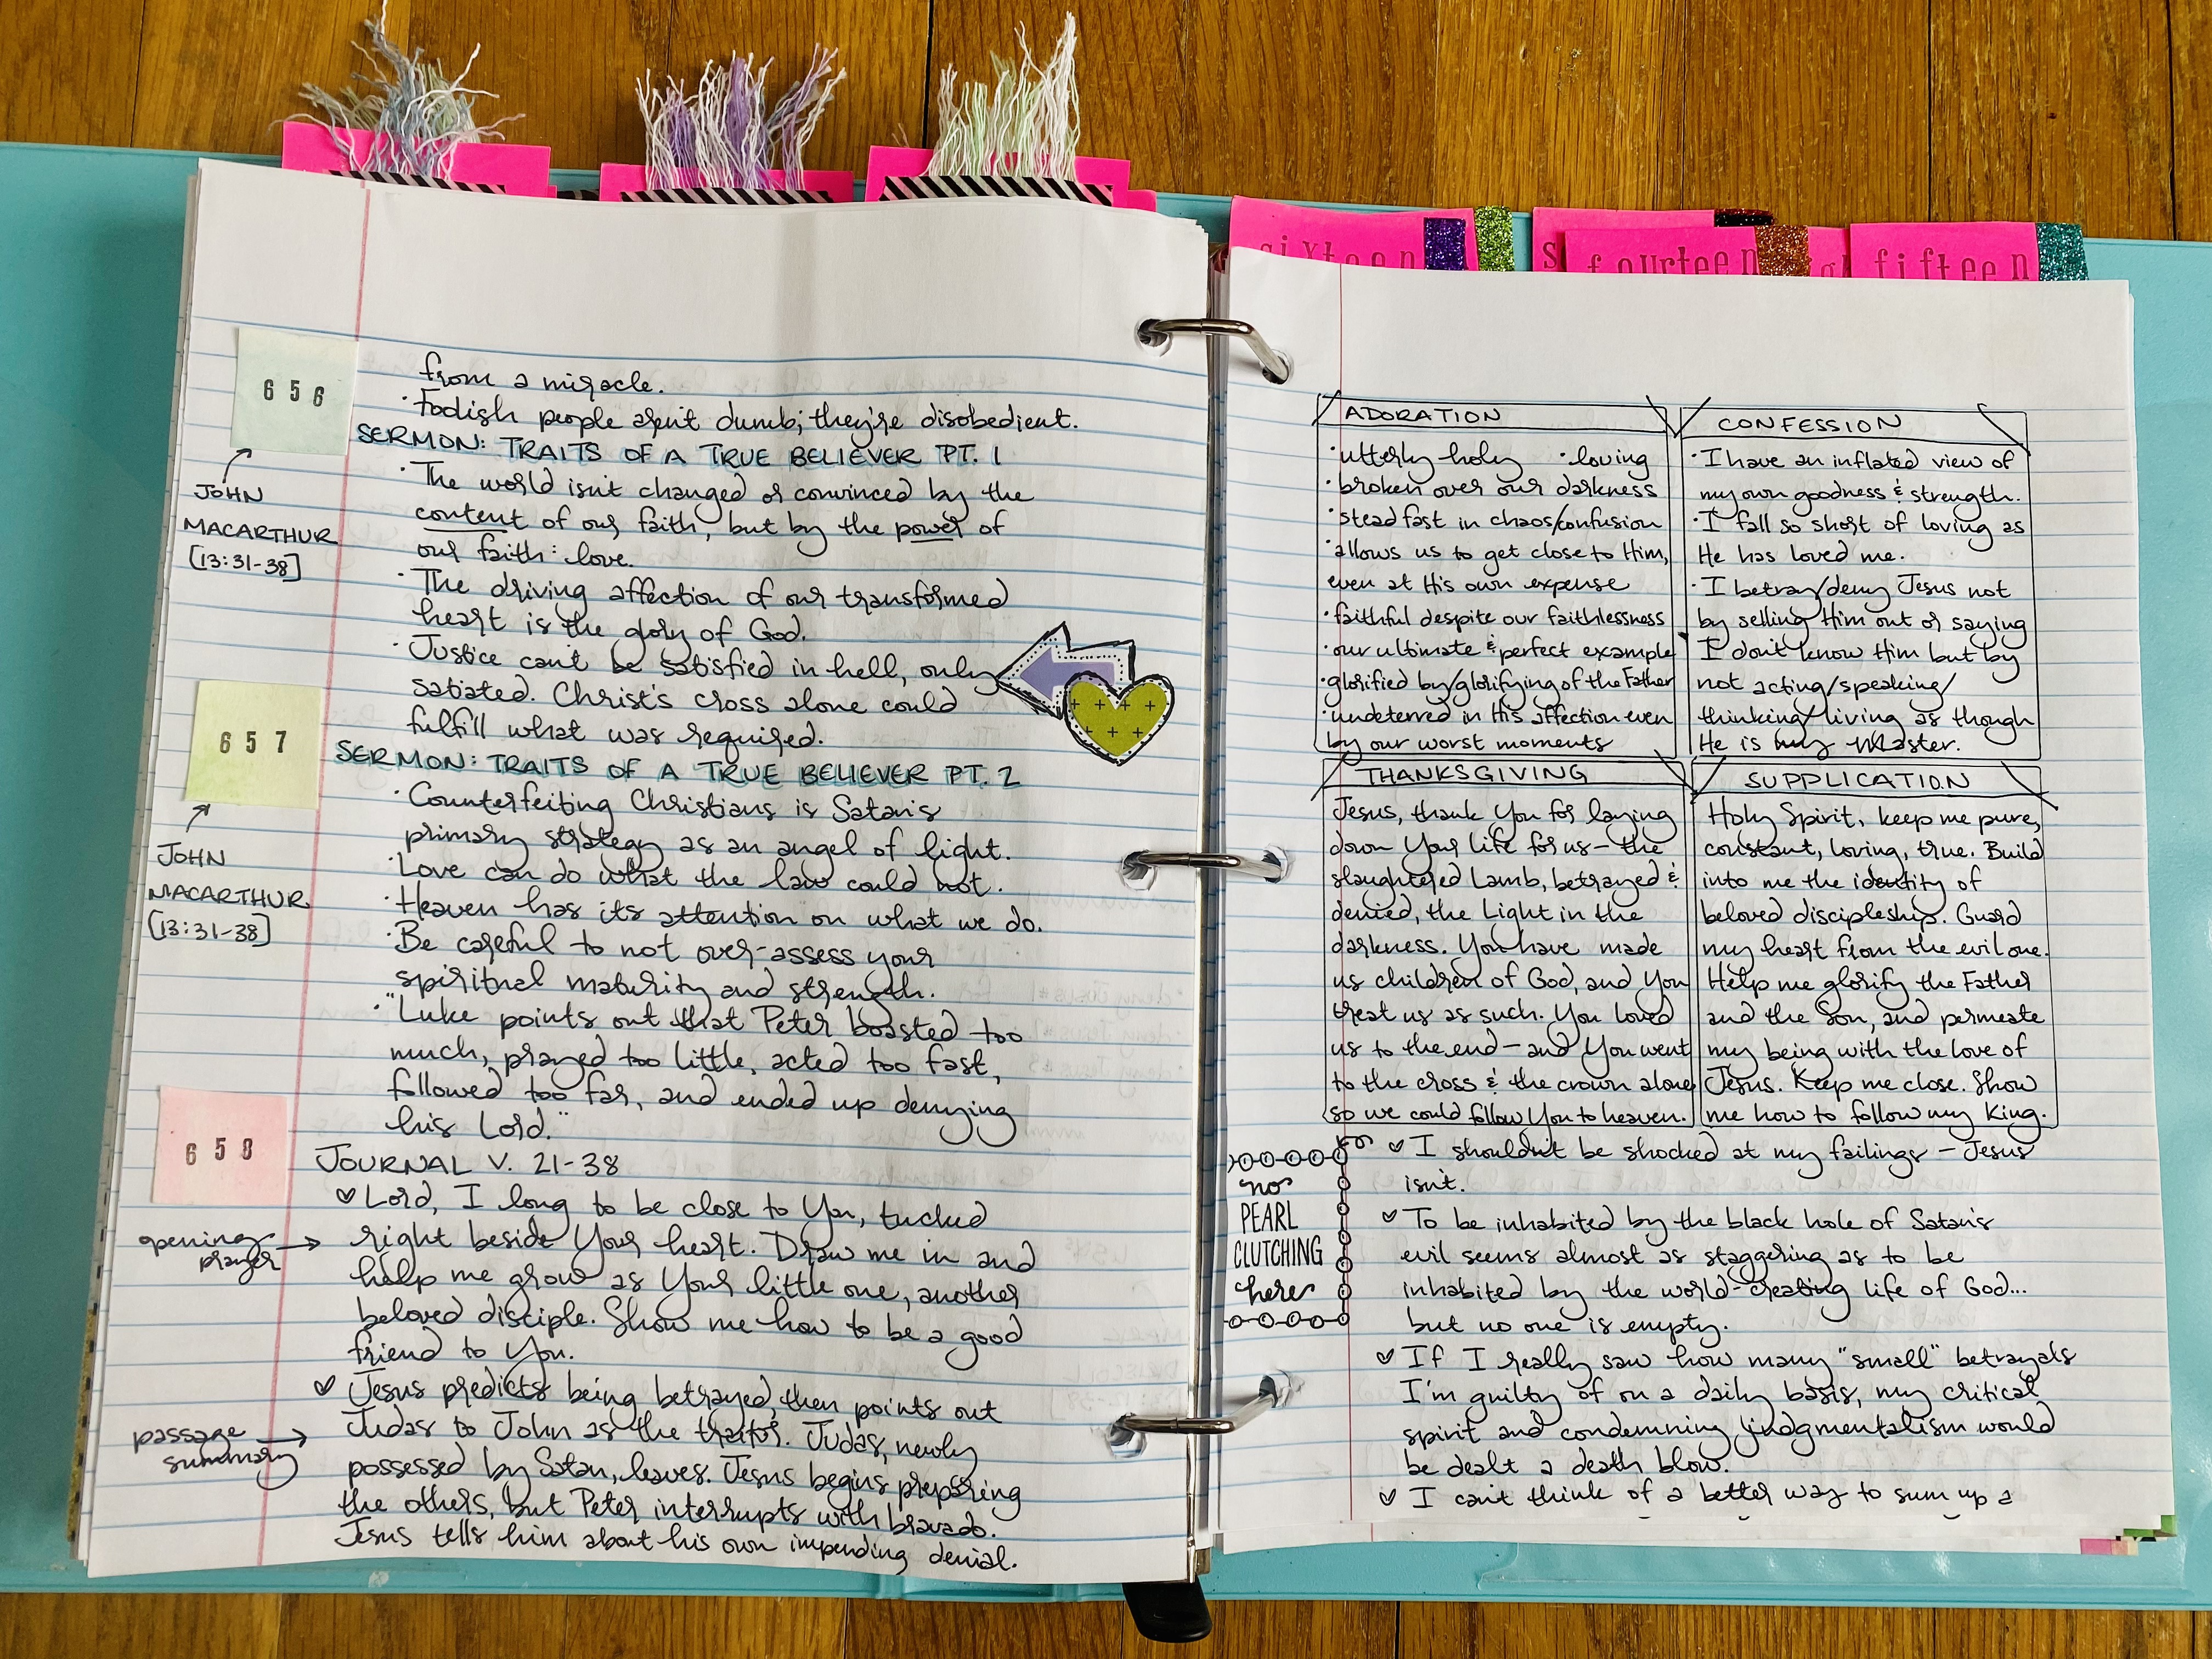 sixteen
s
fourteen
fifteen
656
from a miracle.
·Foolish people aren't dumb; they're disobedient.
SERMON: TRAITS OF A TRUE BELIEVER PT. 1
·The world isn't changed or convinced by the
content of our faith, but by the power of
our faith: love.
·The driving affection of our transformed
heart is the glory of God.
·Justice can't be satisfied in hell, only
satiated. Christ's cross alone could
fulfill what was required.
JOHN
MACARTHUR
[13:31-38]
657
SERMON: TRAITS OF A TRUE BELIEVER PT. 2
·Counterfeiting Christians is Satan's
primary strategy as an angel of light.
·Love can do what the law could not.
·Heaven has its attention on what we do.
·Be careful to not over-assess your
spiritual maturity and strength.
·"Luke points out that Peter boasted too
much, prayed too little, acted too fast,
followed too far, and ended up denying
his Lord."
JOHN
MACARTHUR
[13:31-38]
658
JOURNAL V. 21-38
♡ Lord, I long to be close to You, tucked
right beside Your heart. Draw me in and
help me grow as Your little one, another
beloved disciple. Show me how to be a good
friend to You.
opening
prayer →
♡ Jesus predicts being betrayed, then points out
Judas to John as the traitor. Judas, newly
possessed by Satan, leaves. Jesus begins preparing
the others, but Peter interrupts with bravado.
Jesus tells him about his own impending denial.
passage
summary →
ADORATION
·utterly holy ·loving
·broken over our darkness
·steadfast in chaos/confusion
·allows us to get close to Him,
even at His own expense
·faithful despite our faithlessness
·our ultimate & perfect example
·glorified by/glorifying of the Father
·undeterred in His affection even
by our worst moments
CONFESSION
·I have an inflated view of
my own goodness & strength.
·I fall so short of loving as
He has loved me.
·I betray/deny Jesus not
by selling Him out or saying
I don't know Him but by
not acting/speaking/
thinking/living as though
He is my Master.
THANKSGIVING
Jesus, thank You for laying
down Your life for us—the
slaughtered Lamb, betrayed &
denied, the Light in the
darkness. You have made
us children of God, and You
treat us as such. You loved
us to the end—and You went
to the cross & the crown alone
so we could follow You to heaven.
SUPPLICATION
Holy Spirit, keep me pure,
constant, loving, true. Build
into me the identity of
beloved discipleship. Guard
my heart from the evil one.
Help me glorify the Father
and the Son, and permeate
my being with the love of
Jesus. Keep me close. Show
me how to follow my King.
no
PEARL
CLUTCHING
here
♡ I shouldn't be shocked at my failings — Jesus
isn't.
♡ To be inhabited by the black hole of Satan's
evil seems almost as staggering as to be
inhabited by the world-creating life of God...
but no one is empty.
♡ If I really saw how many "small" betrayals
I'm guilty of on a daily basis, my critical
spirit and condemning judgmentalism would
be dealt a death blow.
♡ I can't think of a better way to sum up a